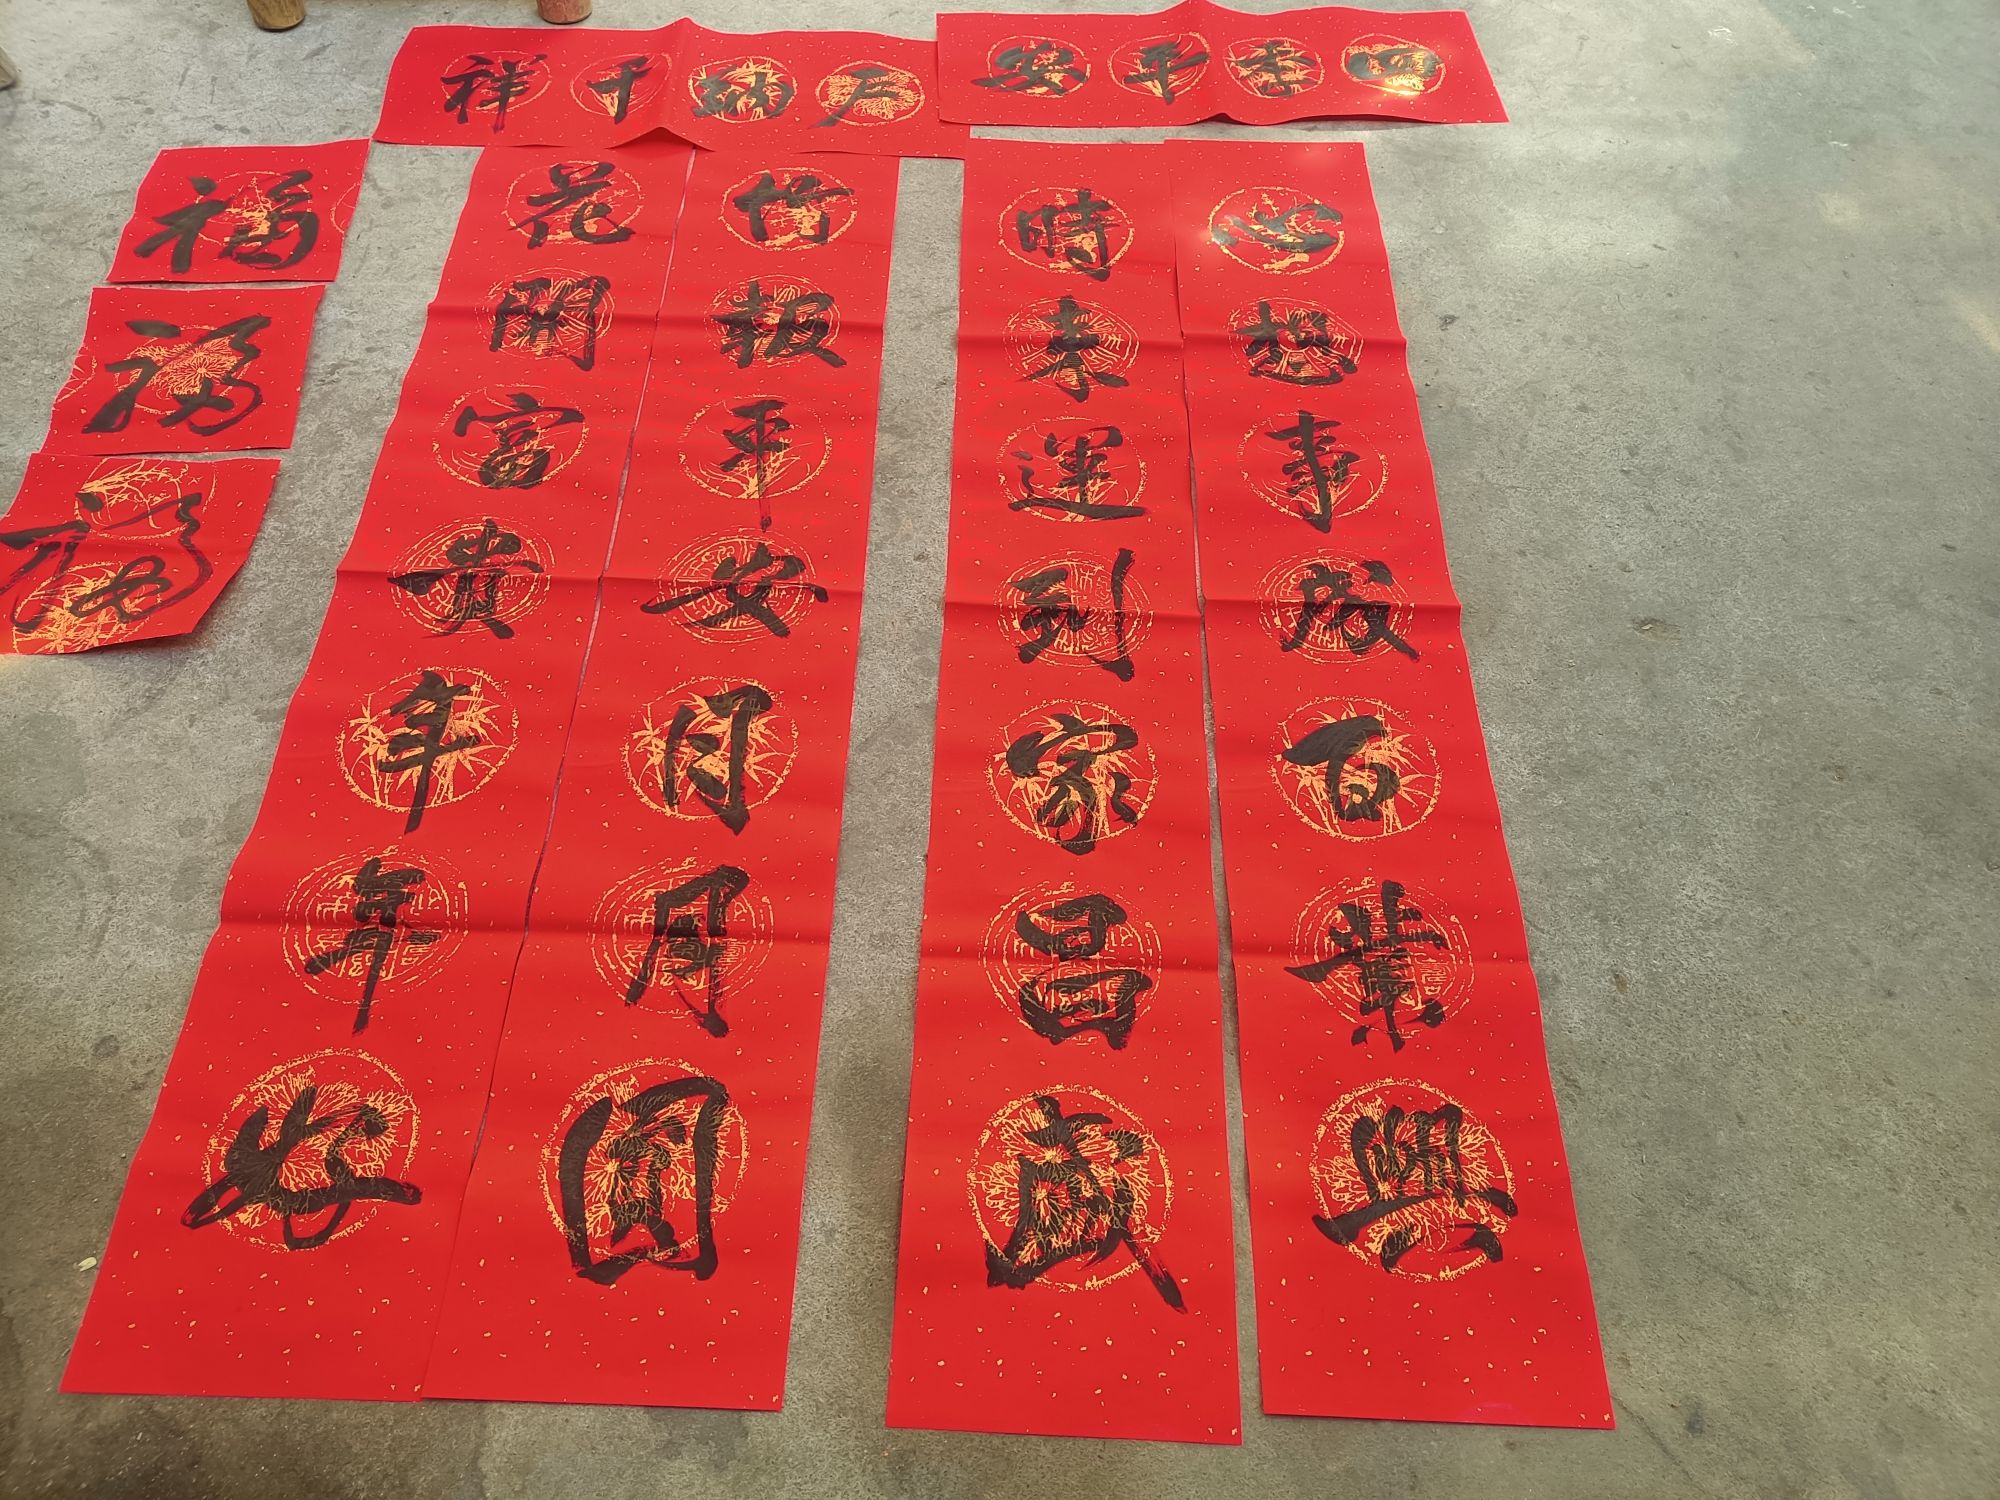 户纳千祥
四季平安
心想事成百業興
時来運到家昌盛
竹報平安月月圓
花開富貴年年安
福
福
福